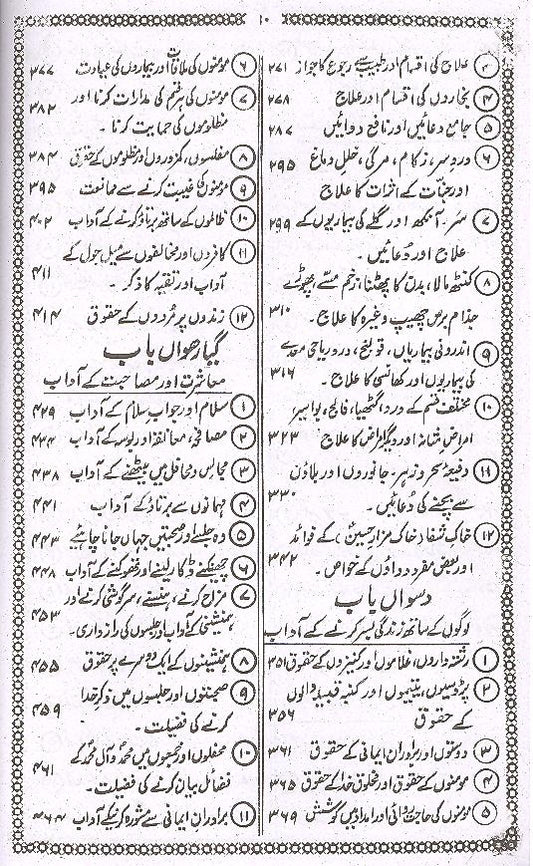 ۱۰
۳ علاج کی اقسام اور طبیب سے رجوع کا جواز ۲۷۱
۴ بخاروں کی اقسام اور علاج ۲۷۸
۵ جامع دعائیں اور نافع دوائیں ۲۸۷
۶ دردِ سر، زکام، مرگی، خللِ دماغ ۲۹۵
اور جنّات کے اثرات کا علاج
۷ سر۔ آنکھ اور گلے کی بیماریوں کے ۲۹۹
علاج اور دُعائیں۔
۸ کنٹھ مالا، بدن کا پھٹنا، زخم، مسّے، پھوڑے
جذام برص چھیپ وغیرہ کا علاج۔ ۳۱۰
۹ اندرونی بیماریاں، قولنج، درد ریاحی معدے
کی بیماریوں اور کھانسی کا علاج۔ ۳۱۶
۱۰ مختلف قسم کے درد، گٹھیا، فالج، بواسیر
امراضِ مثانہ اور دیگر امراض کا علاج ۳۲۳
۱۱ دفیعۂ سحر و زہر۔ جانوروں اور بلاؤں
سے بچنے کی دُعائیں۔ ۳۳۰
۱۲ خاکِ شفا (خاکِ مزارِ حسینؑ) کے فوائد
اور بعض مفرد دواؤں کے خواص۔ ۳۴۲
دسواں باب
لوگوں کے ساتھ زندگی بسر کرنے کے آداب
۱ رشتہ داروں، غلاموں اور کنیزوں کے حقوق ۳۵۱
۲ پڑوسیوں، یتیموں اور کنبہ قبیلہ والوں
کے حقوق ۳۵۶
۳ دوستوں اور برادرانِ ایمانی کے حقوق ۳۶۱
۴ مومنوں کے حقوق اور مخلوقِ خدا کے حقوق ۳۶۵
۵ مومنوں کی حاجت روائی اور امداد میں کوشش ۳۶۹
۶ مومنوں کی ملاقات اور بیماروں کی عیادت ۳۷۷
۷ مومنوں کی ہر قسم کی مدارات کرنا اور ۳۸۲
مظلوموں کی حمایت کرنا۔
۸ مفلسوں، کمزوروں اور مظلوموں کے حقوق ۳۸۴
۹ مومنوں کی غیبت کرنے سے ممانعت ۳۹۵
۱۰ ظالموں کے ساتھ برتاؤ کرنے کے آداب ۴۰۲
۱۱ کافروں اور مخالفوں سے میل جول کے
آداب اور تقیہ کا ذکر۔ ۴۱۱
۱۲ زندوں پر مُردوں کے حقوق ۴۱۴
گیارھواں باب
معاشرت اور مصاحبت کے آداب
۱ سلام اور جوابِ سلام کے آداب ۴۲۹
۲ مصافحہ، معانقہ اور بوسہ کے آداب ۴۳۴
۳ مجالس و محافل میں بیٹھنے کے آداب ۴۳۸
۴ مہمانوں سے برتاؤ کے آداب ۴۴۱
۵ وہ جلسے اور صحبتیں جہاں جانا چاہئے ۴۴۳
۶ چھینکنے ڈکار لینے اور تھوکنے کے آداب ۴۴۸
۷ مزاح کرنے، ہنسنے، سرگوشی کرنے اور
ہمنشینی کے آداب اور جلسوں کی رازداری۔ ۴۵۳
۸ ہمنشینوں کے ایک دوسرے پر حقوق ۴۵۵
۹ صحبتوں اور جلسوں میں ذکرِ خدا
کرنے کی فضیلت۔ ۴۵۹
۱۰ محفلوں اور صحبتوں میں محمدؐ و آلِ محمدؑ کے
فضائل بیان کرنے کی فضیلت۔ ۴۶۱
۱۱ برادرانِ ایمانی سے مشورہ کرنیکے آداب ۴۶۴